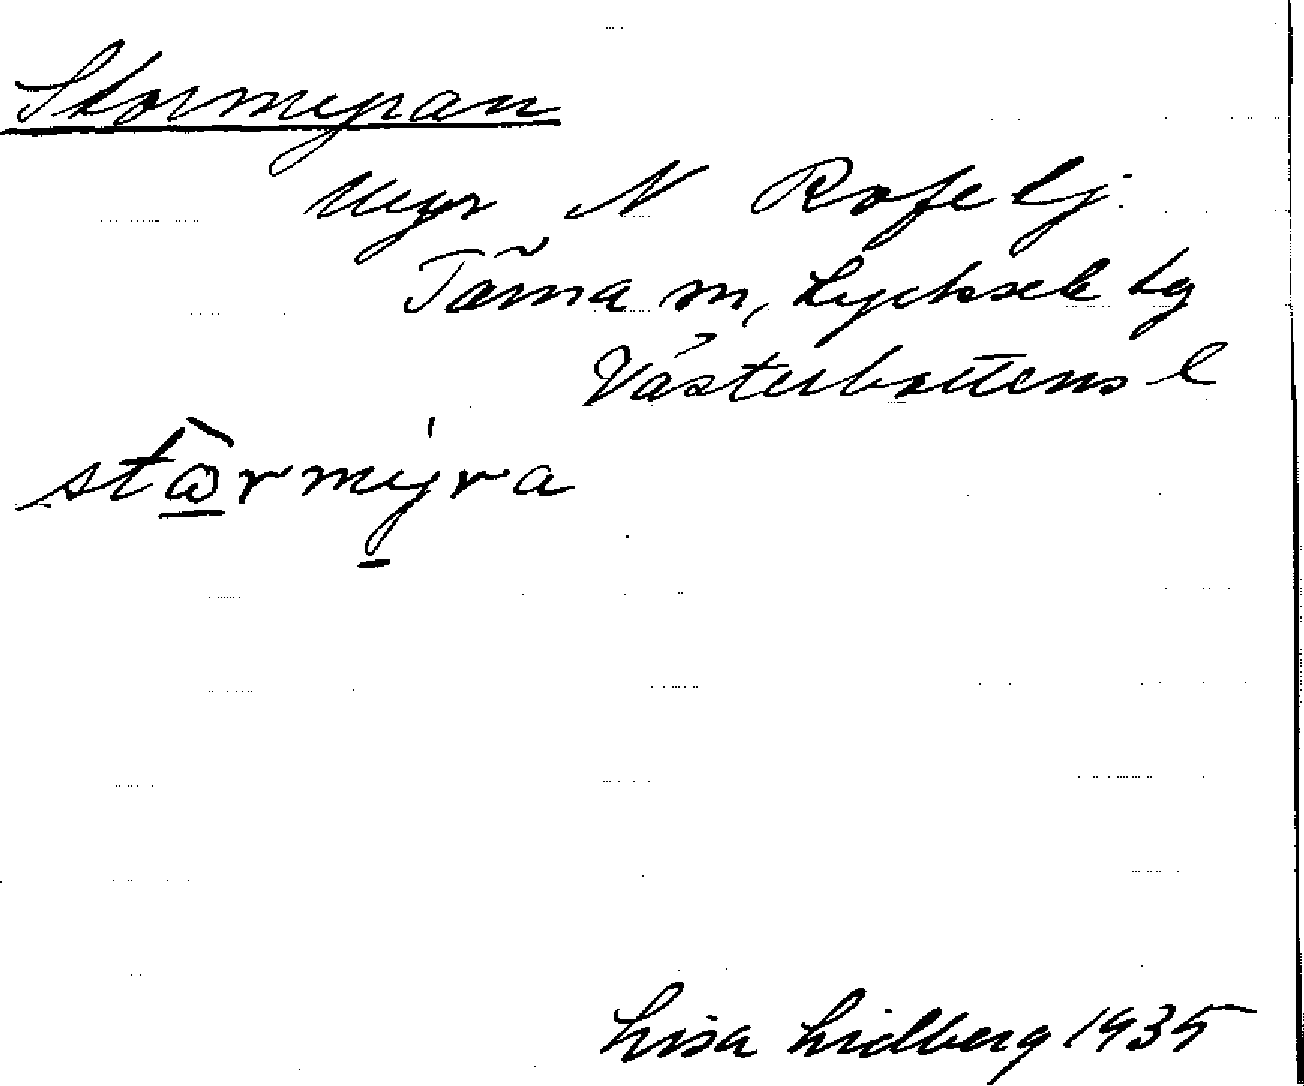 Stormyran
Myr N Rofelj:
Tärna sn, Lycksele lg
Västerbottens l
stω̂rmy̠̍ra
Lisa Lidberg 1935